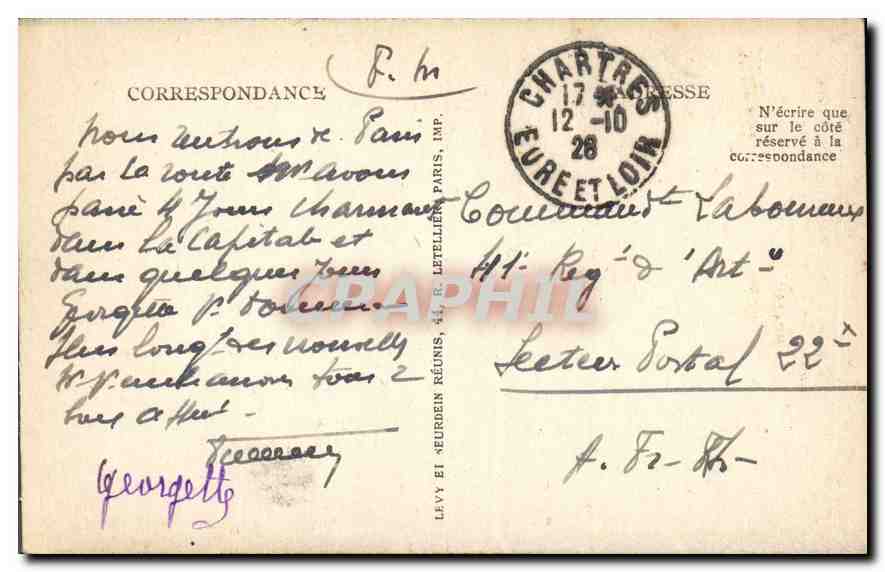 F. M
CORRESPONDANCE
ADRESSE
CHARTRES
17
12 -10
28
EURE ET LOIR
N'écrire que
sur le côté
réservé à la
correspondance
Nous rentrons de Paris
par la route avons
passé 4 Jours charmants
dans la Capitale et
dans quelques jours
Georgette v. donnera
plus longt. des nouvelles
embrassons tous 2
Georgette
Commandt Labomeaux
41e Regt d'Art-ie
Secteur Postal 22
A. Fr. Rh-
LEVY ET NEURDEIN RÉUNIS, 44, R. LETELLIER, PARIS, IMP.
CPAPHIL